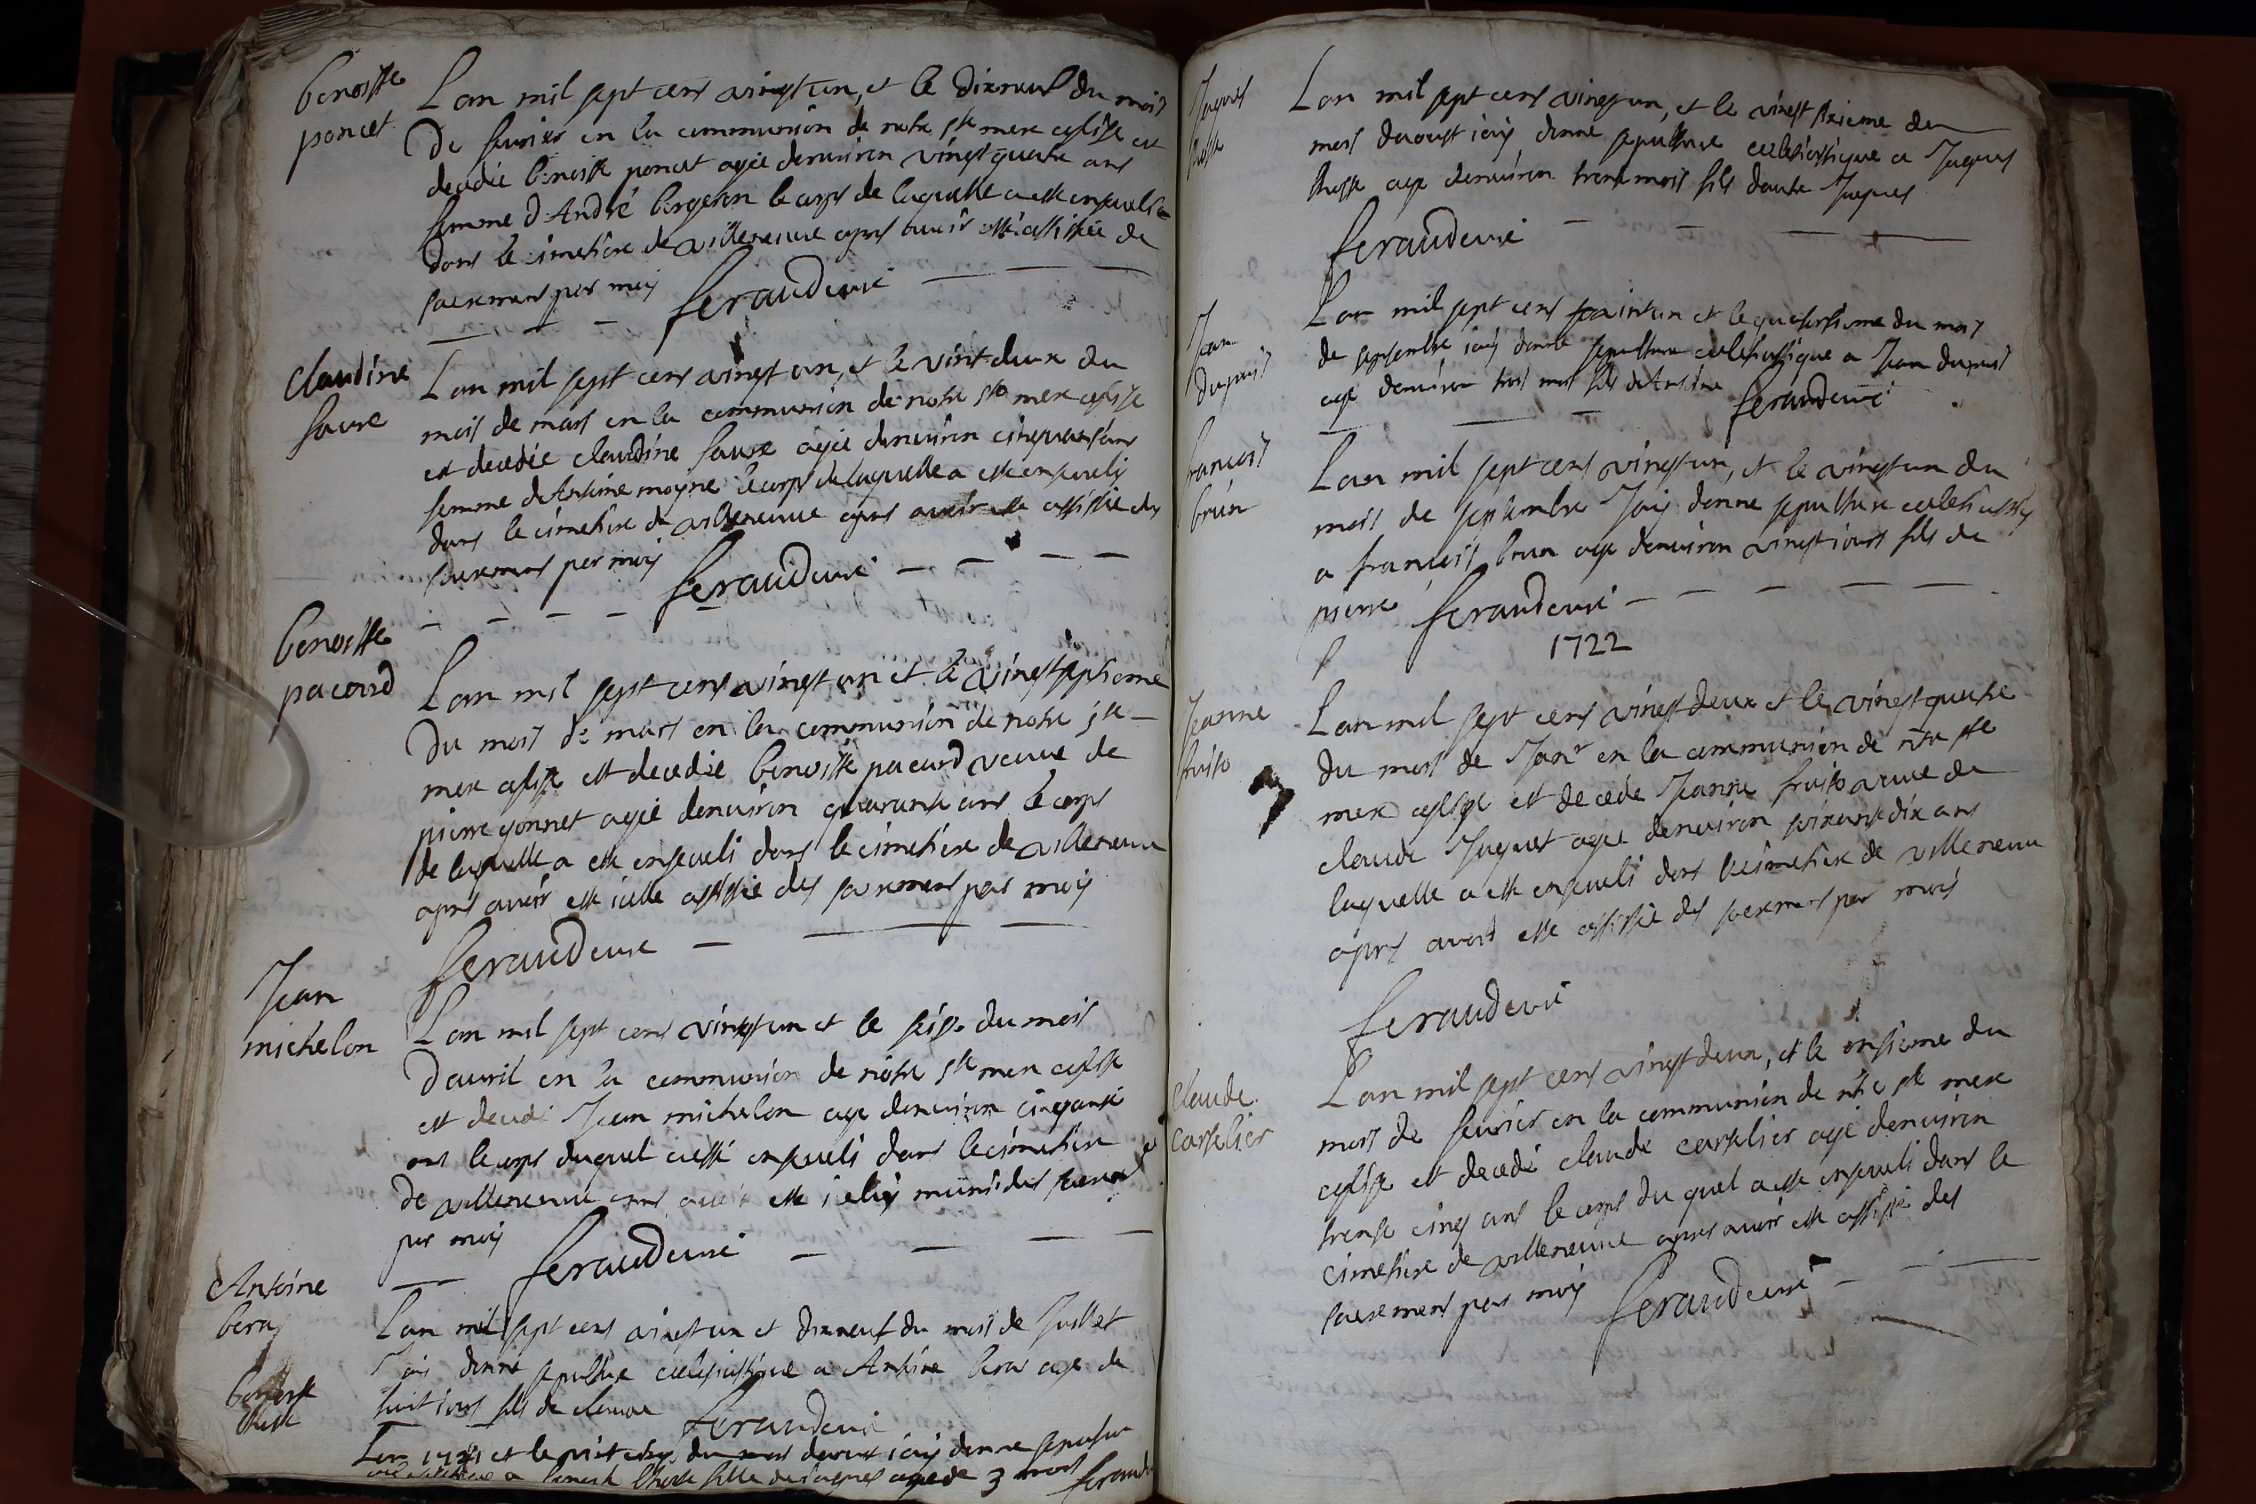 benoiste
poncet
Lan mil sept cens vingt un, et le dixneuf du mois
de feurier en la communion de notre ste mere eglise est
decedée benoiste poncet agée denuiron vingt quatre ans
femme d'André bergeron le corps de laquelle a esté enseueli
dans le cimetiere de villeneuue apres auoir esté assistée de
sacremens par moy feraud curé
claudine
faure
Lan mil sept cens vingt un, et le vint deux du
mois de mars en la communion de notre ste mere eglise
est decedée claudine faure agée denuiron cinquante ans
femme de Antoine moyne le corps de laquelle a esté enseuely
dans le cimetiere de villeneuue apres auoir esté assistée des
sacremens par moy feraud curé
benoiste
pacard
Lan mil sept cens vingt un et le vingt septieme
du mois de mars en la communion de notre ste
mere eglise est decedée benoiste pacard veuue de
pierre yonnet agée denuiron quarante ans le corps
de laquelle a esté enseueli dans le cimetiere de villeneuue
apres auoir esté icelle assistée des sacremens par moy
feraud curé
Jean
michelon
Lan mil sept cens vingt un et le du mois
dauril en la communion de notre ste mere eglise
est decedé Jean michelon age denuiron cinquante
ans le corps duquel a esté enseueli dans le cimetiere
de villeneuue apres auoir esté iceluy muni des sacrem
par moy feraud curé
Antoine
bera
Lan mil sept cens vingt un et dixneuf du mois de Juillet
J'ay donné sepulture eclesiastique a Antoine bera age de
huit iours fils de claude feraud curé
benoiste
Lan 1721 et le vint cinq du mois daoust i'ay donné sepultur
a benoiste fille de Jaques agée de 3 mois feraud
Jaques
Lan mil sept cens vingt un, et le vingt sixieme du
mois daoust i'ay donné sepulture eclesiastique a Jaques
age denuiron trente mois fils dautre Jaques
feraud curé
Jean
dupuis
Lan mil sept cens vaint un et le quatorsieme du mois
de septembre i'ay donné sepulture eclesiastique a Jean dupuis
age denuiron trois mois fils de Antoine feraud curé
francois
brun
Lan mil sept cens vingt un, et le vingt un du
mois de septembre J'ay donné sepulture eclesiastiq
a francois brun age denuiron vingt iours fils de
pierre feraud curé
1722
Jeanne
fruito
Lan mil sept cens vingt deux et le vingt quatre
du mois de Janr en la communion de ntre ste
mere eglise est decedé Jeanne fruito veuue de
claude Juquet agée denuiron soixante dix ans
laquelle a esté enseueli dans le cimetiere de villeneuue
apres auoir esté assistée des sacremens par moy
feraud curé
claude
cartelier
Lan mil sept cens vingt deux, et le onsieme du
mois de feurier en la communion de ntre ste mere
eglise est decedé claude cartelier agé denuiron
trente cinq ans le corps du quel a esté enseueli dans le
cimetiere de villeneuue apres auoir esté assisté des
sacremens par moy feraud curé